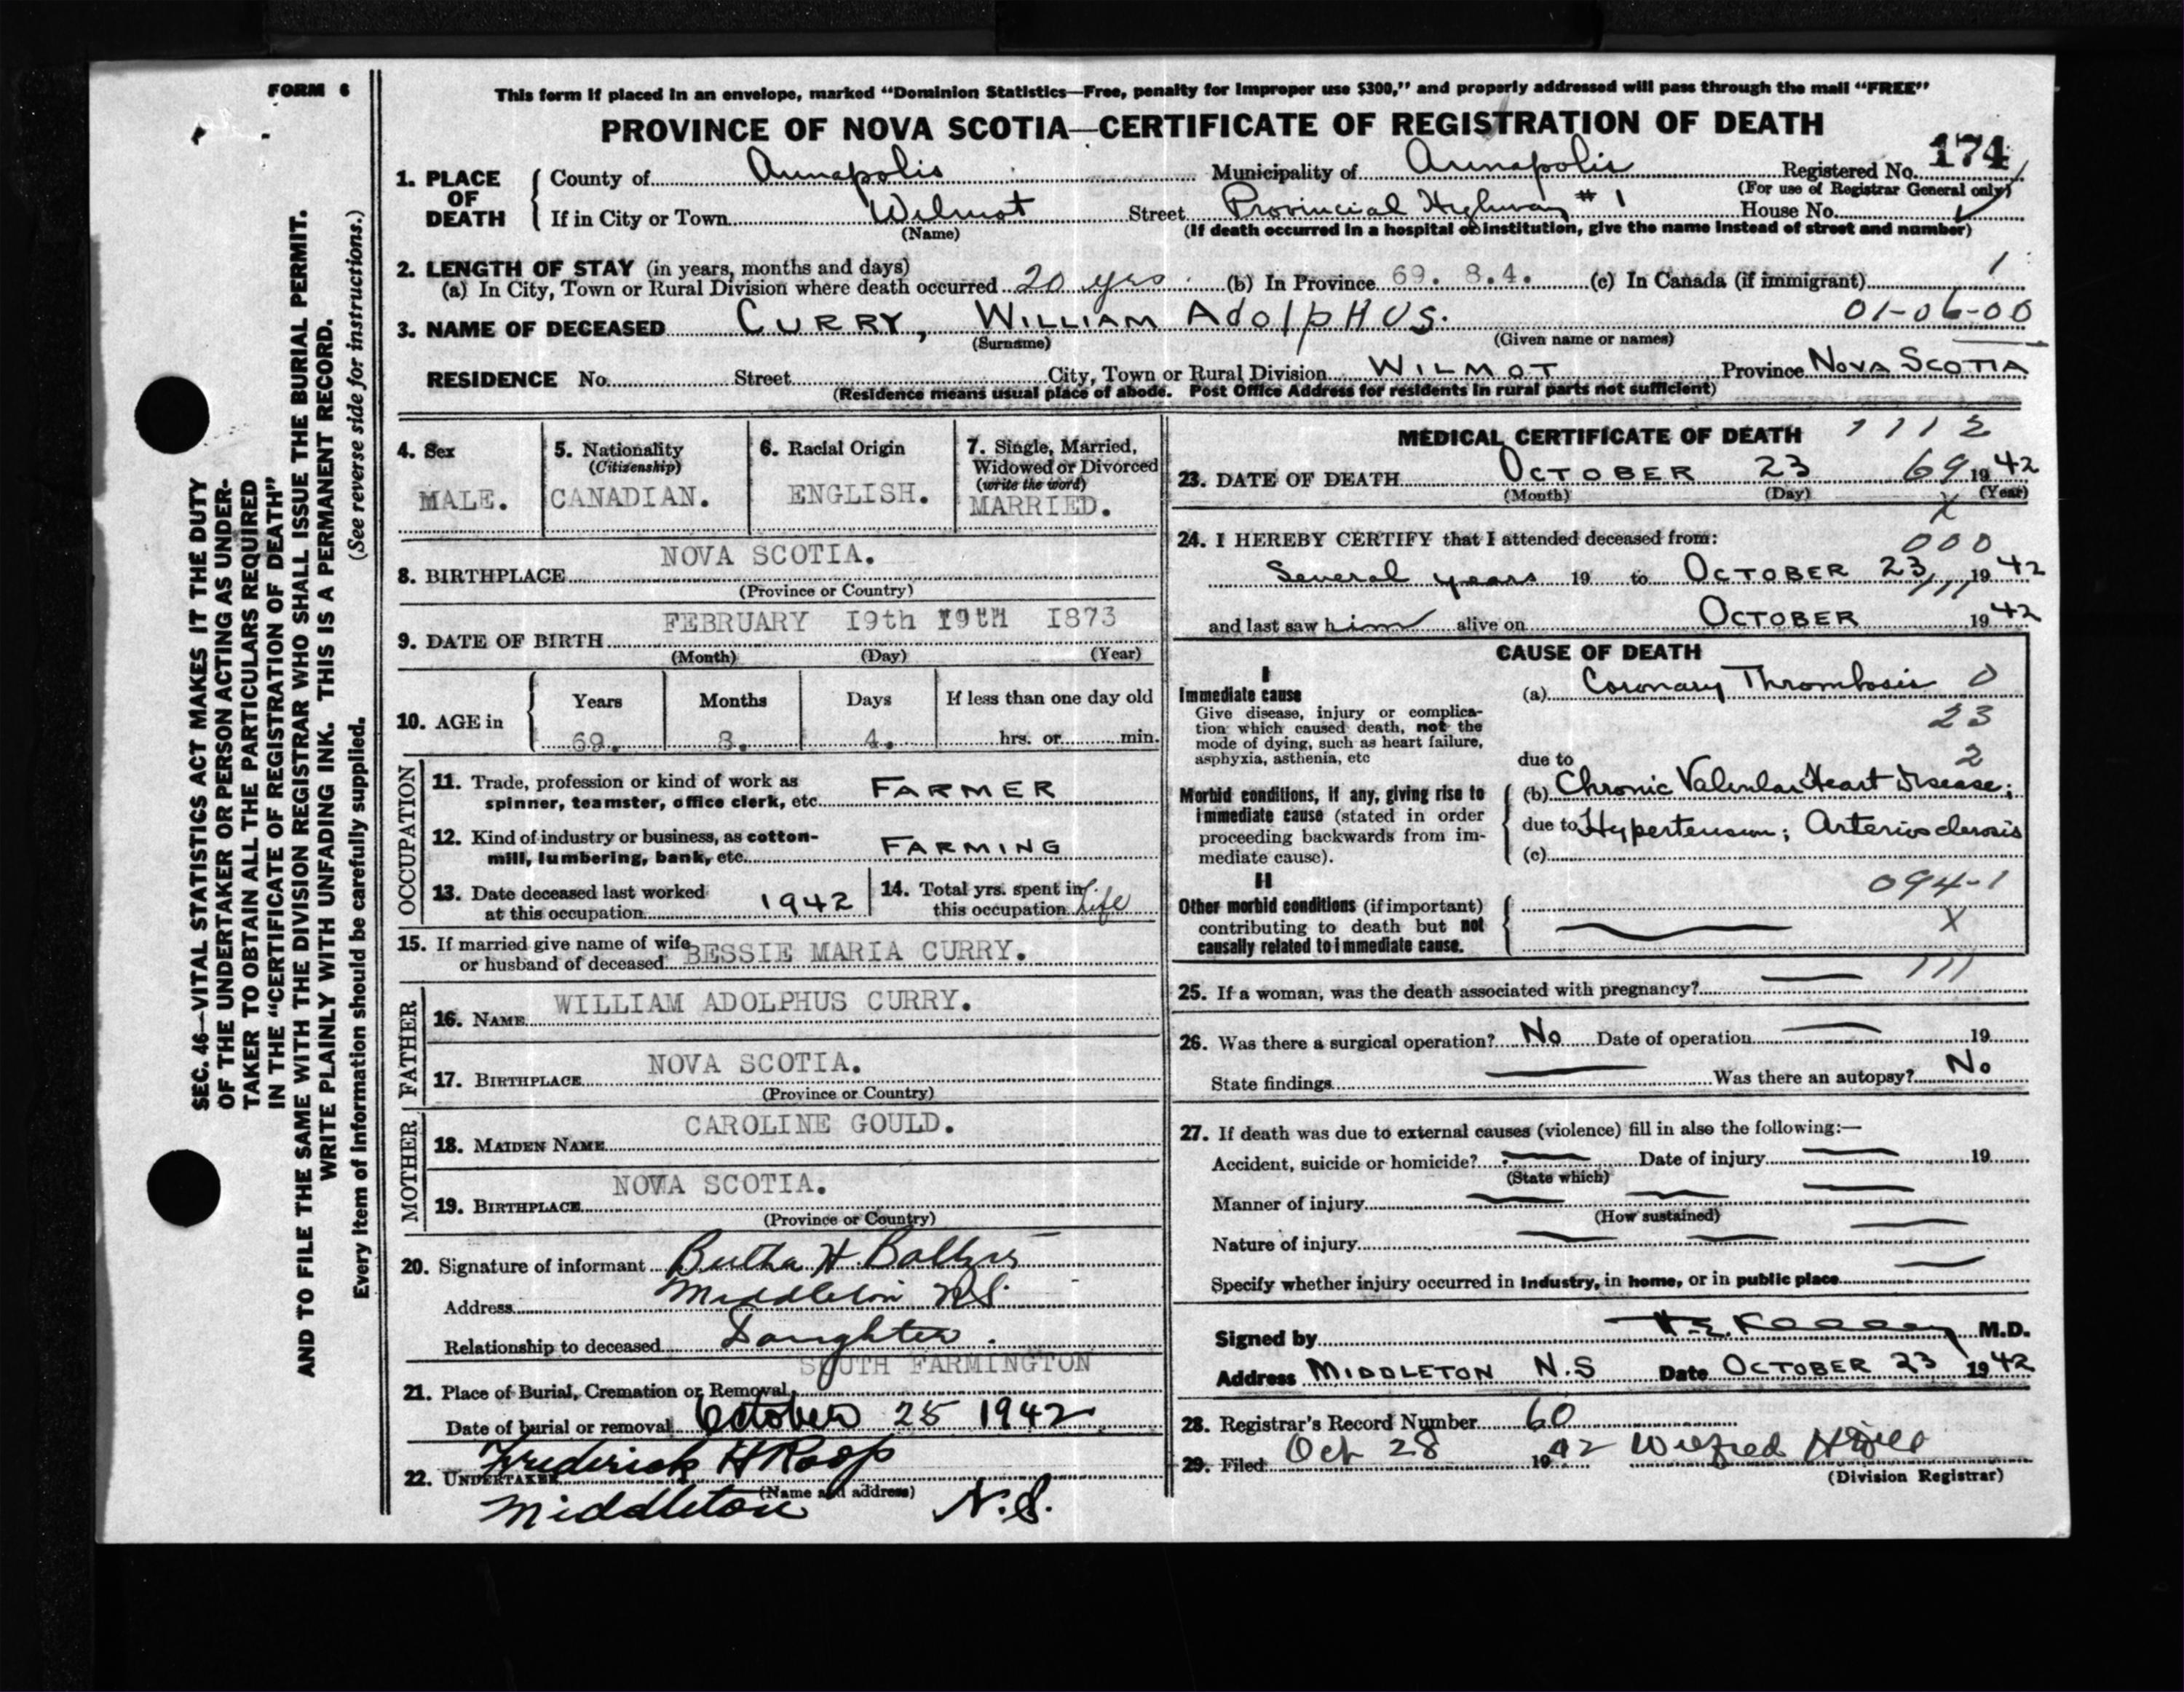 FORM 6
SEC. 46—VITAL STATISTICS ACT MAKES IT THE DUTY
OF THE UNDERTAKER OR PERSON ACTING AS UNDER-
TAKER TO OBTAIN ALL THE PARTICULARS REQUIRED
IN THE "CERTIFICATE OF REGISTRATION OF DEATH"
AND TO FILE THE SAME WITH THE DIVISION REGISTRAR WHO SHALL ISSUE THE BURIAL PERMIT.
WRITE PLAINLY WITH UNFADING INK. THIS IS A PERMANENT RECORD.
Every item of information should be carefully supplied. (See reverse side for instructions.)
This form if placed in an envelope, marked "Dominion Statistics—Free, penalty for improper use $300," and properly addressed will pass through the mail "FREE"
PROVINCE OF NOVA SCOTIA—CERTIFICATE OF REGISTRATION OF DEATH
174
1. PLACE OF DEATH County of Annapolis Municipality of Annapolis Registered No.
(For use of Registrar General only)
If in City or Town Wilmot Street Provincial Highway #1 House No.
(Name) (If death occurred in a hospital or institution, give the name instead of street and number)
2. LENGTH OF STAY (in years, months and days)
(a) In City, Town or Rural Division where death occurred 20 yrs. (b) In Province 69. 8.4. (c) In Canada (if immigrant) 1
3. NAME OF DECEASED CURRY, WILLIAM AdolpHUS. 01-06-00
(Surname) (Given name or names)
RESIDENCE No. Street City, Town or Rural Division WILMOT Province NOVA SCOTIA
(Residence means usual place of abode. Post Office Address for residents in rural parts not sufficient)
4. Sex
MALE.
5. Nationality
(Citizenship)
CANADIAN.
6. Racial Origin
ENGLISH.
7. Single, Married,
Widowed or Divorced
(write the word)
MARRIED.
8. BIRTHPLACE NOVA SCOTIA.
(Province or Country)
9. DATE OF BIRTH FEBRUARY 19th 19th 1873
(Month) (Day) (Year)
10. AGE in
Years Months Days If less than one day old
69. 8. 4. hrs. or min.
OCCUPATION
11. Trade, profession or kind of work as
spinner, teamster, office clerk, etc. FARMER
12. Kind of industry or business, as cotton-
mill, lumbering, bank, etc. FARMING
13. Date deceased last worked
at this occupation 1942
14. Total yrs. spent in
this occupation Life
15. If married give name of wife
or husband of deceased BESSIE MARIA CURRY.
FATHER
16. NAME WILLIAM ADOLPHUS CURRY.
17. BIRTHPLACE NOVA SCOTIA.
(Province or Country)
MOTHER
18. MAIDEN NAME CAROLINE GOULD.
19. BIRTHPLACE NOVA SCOTIA.
(Province or Country)
20. Signature of informant H
Address Middleton N.S.
Relationship to deceased Daughter.
21. Place of Burial, Cremation or Removal SOUTH FARMINGTON
Date of burial or removal October 25 1942
22. UNDERTAKER Frederick H Roop
(Name and address)
Middleton N.S.
MEDICAL CERTIFICATE OF DEATH 1112
23. DATE OF DEATH OCTOBER 23 69 1942
(Month) (Day) (Year)
X
24. I HEREBY CERTIFY that I attended deceased from: 000
Several years 19 to OCTOBER 23, 1942
111
and last saw him alive on OCTOBER 1942
CAUSE OF DEATH
I
Immediate cause
Give disease, injury or complica-
tion which caused death, not the
mode of dying, such as heart failure,
asphyxia, asthenia, etc
(a) Coronary Thrombosis 0
23
2
due to
Morbid conditions, if any, giving rise to
immediate cause (stated in order
proceeding backwards from im-
mediate cause).
(b) Chronic Valvular Heart Disease;
due to Hypertension; Arteriosclerosis
(c)
II
094-1
Other morbid conditions (if important)
contributing to death but not
causally related to immediate cause.
X
111
25. If a woman, was the death associated with pregnancy?
26. Was there a surgical operation? No Date of operation 19
State findings Was there an autopsy? No
27. If death was due to external causes (violence) fill in also the following:—
Accident, suicide or homicide? Date of injury 19
(State which)
Manner of injury
(How sustained)
Nature of injury
Specify whether injury occurred in industry, in home, or in public place
Signed by H.E. M.D.
Address MIDDLETON N.S Date OCTOBER 23 1942
28. Registrar's Record Number 60
29. Filed Oct 28 1942 Wilfred
(Division Registrar)